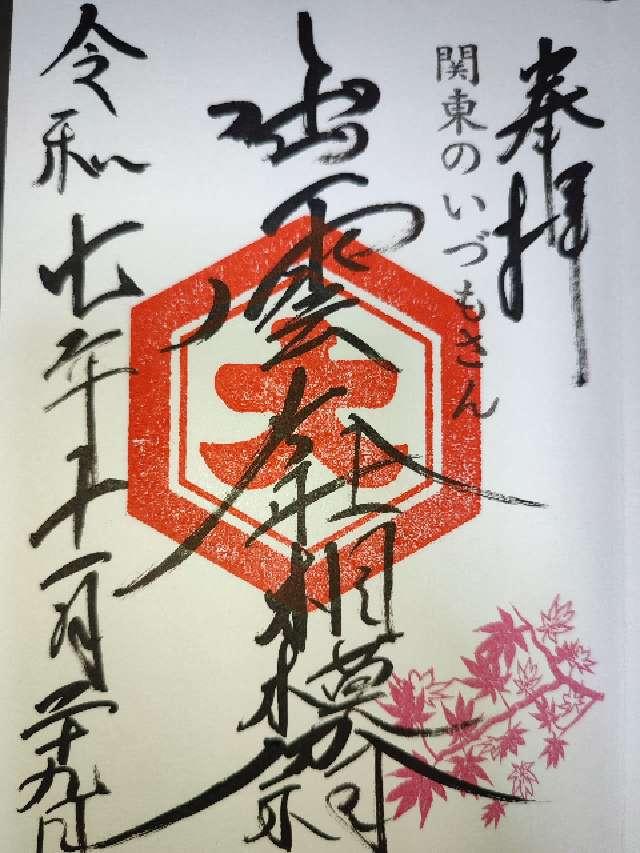 奉拝
関東のいづもさん
出雲大社相模分祠
大
令和七年十一月二十九日